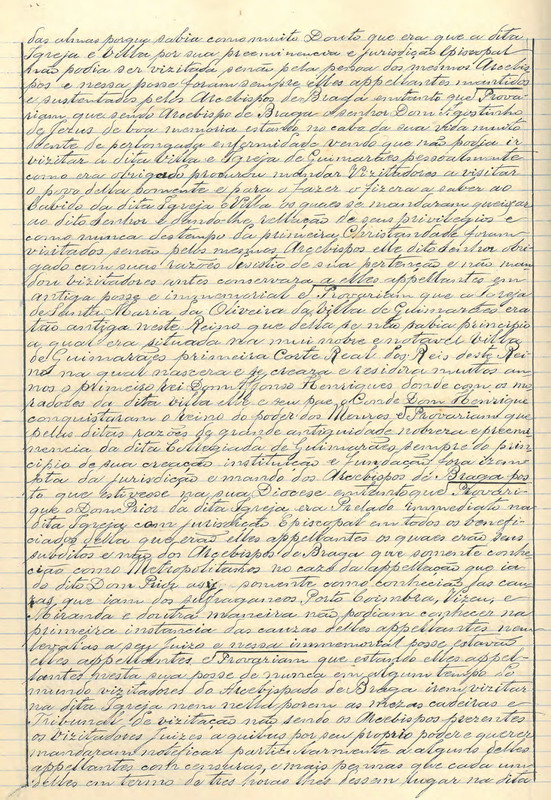 das almas porque sabia como muito Douto que era que a dita
Igreja e Villa por sua preeminencia e jurisdição Episcopal
não podia ser vizitada senão pela pessoa dos mesmos Arcebis
pos e nessa posse foram sempre elles appellantes mantidos
e sustentados pelos Arcebispos de Braga emtanto que Provar
iam que sendo Arcebispo de Braga o senhor Dom Agostinho
de Jezus de boa memoria estando no cabo da sua vida muito
doente de perlongada enfermidade vendo que não podia ir
vizitar a dita Villa e Igreja de Guimarães pessoalmente
como era obrigado procurou mandar Vizitadores a visitar
o povo della somente e para o fazer o fizera a saber ao
Cabido da dita Igreja e Villa os quaes se mandaram queixar
ao dito senhor e dando-lhe rellação de seus privilegios e
como nunca des tempo da primeira Christandade foram
visitados senão pelos mesmos Arcebispos elle dito senhor obri
gado com suas razões desistio de sua pertenção e não man
dou vizitadores antes conservara a elles appellantes em
antiga posse e immemorial e Provariam que a Igreja
de Santa Maria da Oliveira da Villa de Guimarães era
tão antiga neste Reino que della se não sabia principio
a qual era situada na mui nobre e notavel villa
de Guimarães primeira Corte Real dos Reis deste Rei
no na qual nascera e se creara e residira muitos an
nos o primeiro rei Dom Affonso Henriques donde com os mo
radores da dita villa elle e seu pae o Conde Dom Henrique
conquistaram o Reino do poder dos Mouros e Provariam que
pelas ditas razões de grande antiguidade nobreza e preemi
nencia da dita Collegiada de Guimarães sempre do prin
cipio de sua creação instituição e fundação fora izem
pta da jurisdição e mando dos Arcebispos de Braga pos
to que estivesse na sua Diocese emtanto que Provari
que o Dom Prior da dita Igreja era Prelado immediato na
dita Igreja com jurisdição Episcopal em todos os benefi
ciados della que eram elles appellantes os quaes erão seus
subditos e não dos Arcebispos de Braga que somente conhe
cião como Metropolitanos no cazo da appellação que ia
do dito Dom Prior somente como conhecião das cau
zas que iam dos suffraganeos Porto Coimbra, Vizeu, e
Miranda e doutra maneira não podiam conhecer na
primeira instancia das cauzas delles appellantes nem
leval-as a seu juizo e nessa immemorial posse estavão
elles appellantes. e Provariam que estando elles appel
lantes nesta sua posse de nunca em algum tempo do
mundo vizitadores do Arcebispado de Braga irem vizitar
na dita Igreja nem nella porem as mezas cadeiras e
Tribunal de vizitação não sendo os Arcebispos prezentes
os vizitadores juizes a quibus por seu proprio poder e querer
mandaram notificar particularmente a alguns delles
appellantes com censuras, e mais pennas que cada um
delles em termo de tres horas lhes dessem lugar na dita